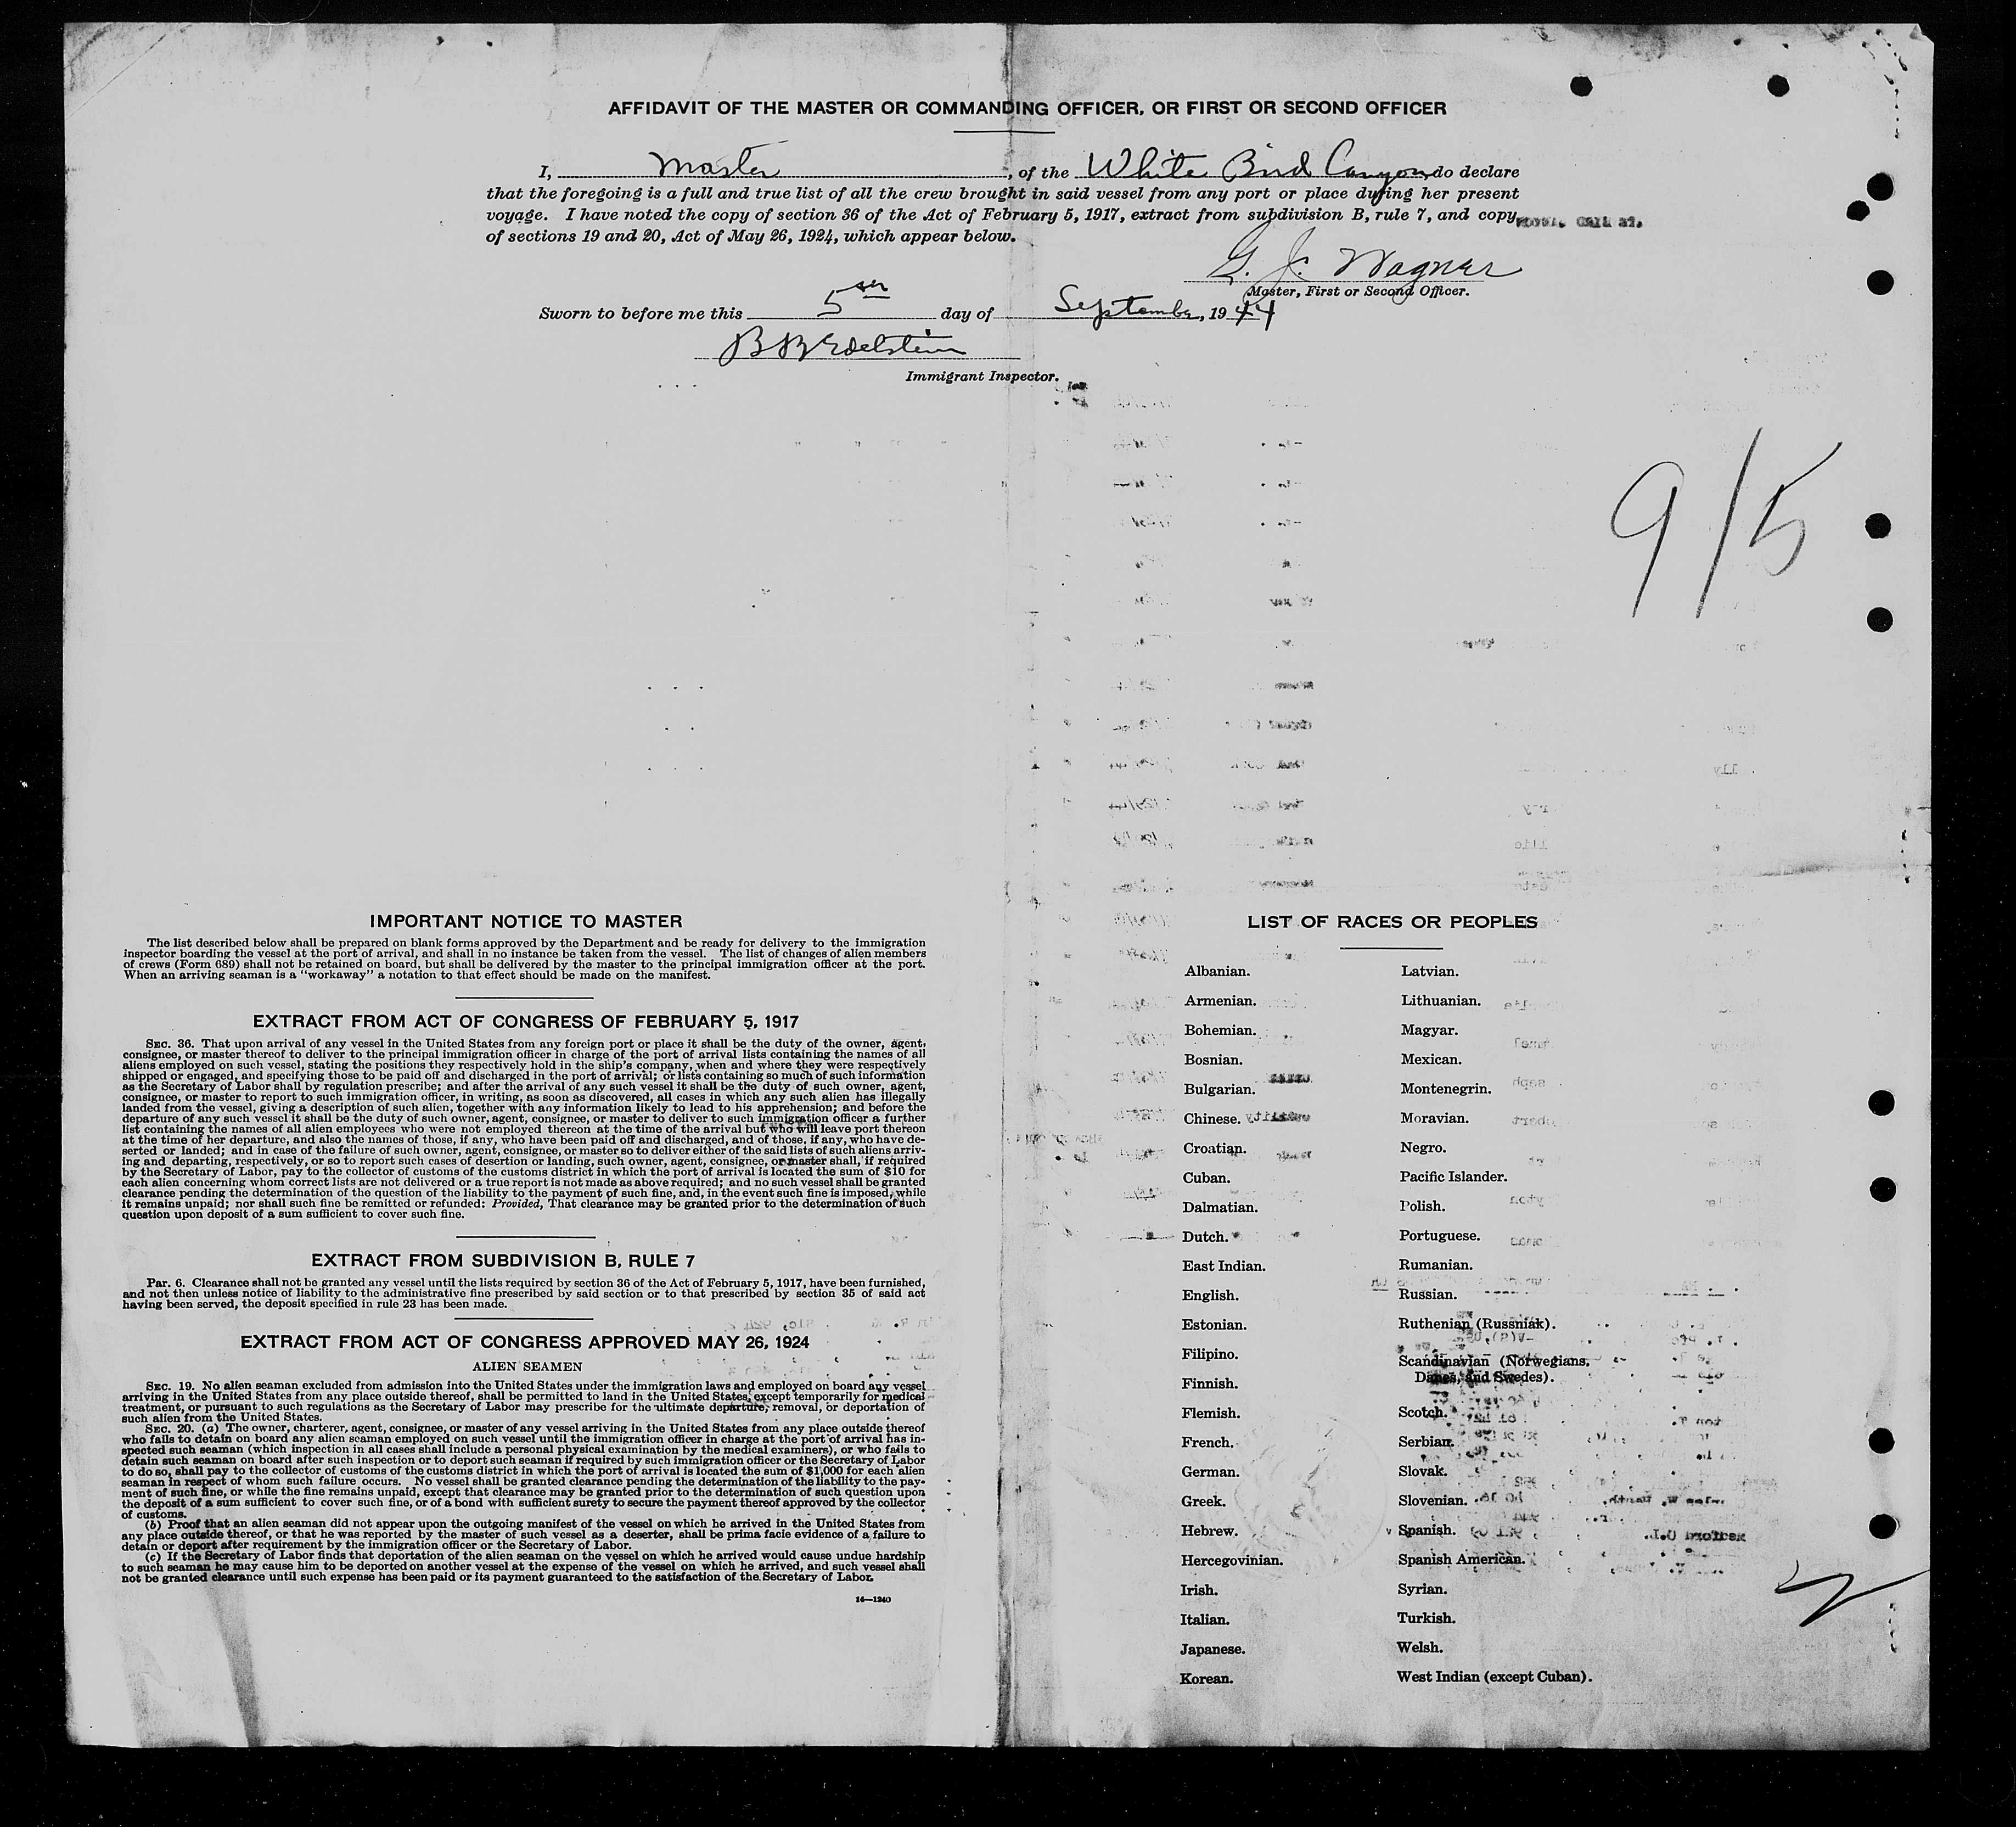 AFFIDAVIT OF THE MASTER OR COMMANDING OFFICER, OR FIRST OR SECOND OFFICER
I, Master, of the White Bird Canyon, do declare
that the foregoing is a full and true list of all the crew brought in said vessel from any port or place during her present
voyage. I have noted the copy of section 36 of the Act of February 5, 1917, extract from subdivision B, rule 7, and copy
of sections 19 and 20, Act of May 26, 1924, which appear below.
G. J. Wagner
Master, First or Second Officer.
Sworn to before me this 5th day of September, 1944
B B Edelstein
Immigrant Inspector.
9/5
IMPORTANT NOTICE TO MASTER
The list described below shall be prepared on blank forms approved by the Department and be ready for delivery to the immigration
inspector boarding the vessel at the port of arrival, and shall in no instance be taken from the vessel. The list of changes of alien members
of crews (Form 689) shall not be retained on board, but shall be delivered by the master to the principal immigration officer at the port.
When an arriving seaman is a "workaway" a notation to that effect should be made on the manifest.
EXTRACT FROM ACT OF CONGRESS OF FEBRUARY 5, 1917
SEC. 36. That upon arrival of any vessel in the United States from any foreign port or place it shall be the duty of the owner, agent,
consignee, or master thereof to deliver to the principal immigration officer in charge of the port of arrival lists containing the names of all
aliens employed on such vessel, stating the positions they respectively hold in the ship's company, when and where they were respectively
shipped or engaged, and specifying those to be paid off and discharged in the port of arrival; or lists containing so much of such information
as the Secretary of Labor shall by regulation prescribe; and after the arrival of any such vessel it shall be the duty of such owner, agent,
consignee, or master to report to such immigration officer, in writing, as soon as discovered, all cases in which any such alien has illegally
landed from the vessel, giving a description of such alien, together with any information likely to lead to his apprehension; and before the
departure of any such vessel it shall be the duty of such owner, agent, consignee, or master to deliver to such immigration officer a further
list containing the names of all alien employees who were not employed thereon at the time of the arrival but who will leave port thereon
at the time of her departure, and also the names of those, if any, who have been paid off and discharged, and of those, if any, who have de-
serted or landed; and in case of the failure of such owner, agent, consignee, or master so to deliver either of the said lists of such aliens arriv-
ing and departing, respectively, or so to report such cases of desertion or landing, such owner, agent, consignee, or master shall, if required
by the Secretary of Labor, pay to the collector of customs of the customs district in which the port of arrival is located the sum of $10 for
each alien concerning whom correct lists are not delivered or a true report is not made as above required; and no such vessel shall be granted
clearance pending the determination of the question of the liability to the payment of such fine, and, in the event such fine is imposed, while
it remains unpaid; nor shall such fine be remitted or refunded: Provided, That clearance may be granted prior to the determination of such
question upon deposit of a sum sufficient to cover such fine.
EXTRACT FROM SUBDIVISION B, RULE 7
Par. 6. Clearance shall not be granted any vessel until the lists required by section 36 of the Act of February 5, 1917, have been furnished,
and not then unless notice of liability to the administrative fine prescribed by said section or to that prescribed by section 35 of said act
having been served, the deposit specified in rule 23 has been made.
EXTRACT FROM ACT OF CONGRESS APPROVED MAY 26, 1924
ALIEN SEAMEN
SEC. 19. No alien seaman excluded from admission into the United States under the immigration laws and employed on board any vessel
arriving in the United States from any place outside thereof, shall be permitted to land in the United States, except temporarily for medical
treatment, or pursuant to such regulations as the Secretary of Labor may prescribe for the ultimate departure, removal, or deportation of
such alien from the United States.
SEC. 20. (a) The owner, charterer, agent, consignee, or master of any vessel arriving in the United States from any place outside thereof
who fails to detain on board any alien seaman employed on such vessel until the immigration officer in charge at the port of arrival has in-
spected such seaman (which inspection in all cases shall include a personal physical examination by the medical examiners), or who fails to
detain such seaman on board after such inspection or to deport such seaman if required by such immigration officer or the Secretary of Labor
to do so, shall pay to the collector of customs of the customs district in which the port of arrival is located the sum of $1,000 for each alien
seaman in respect of whom such failure occurs. No vessel shall be granted clearance pending the determination of the liability to the pay-
ment of such fine, or while the fine remains unpaid, except that clearance may be granted prior to the determination of such question upon
the deposit of a sum sufficient to cover such fine, or of a bond with sufficient surety to secure the payment thereof approved by the collector
of customs.
(b) Proof that an alien seaman did not appear upon the outgoing manifest of the vessel on which he arrived in the United States from
any place outside thereof, or that he was reported by the master of such vessel as a deserter, shall be prima facie evidence of a failure to
detain or deport after requirement by the immigration officer or the Secretary of Labor.
(c) If the Secretary of Labor finds that deportation of the alien seaman on the vessel on which he arrived would cause undue hardship
to such seaman he may cause him to be deported on another vessel at the expense of the vessel on which he arrived, and such vessel shall
not be granted clearance until such expense has been paid or its payment guaranteed to the satisfaction of the Secretary of Labor.
14—1240
LIST OF RACES OR PEOPLES
Albanian.
Armenian.
Bohemian.
Bosnian.
Bulgarian.
Chinese.
Croatian.
Cuban.
Dalmatian.
Dutch.
East Indian.
English.
Estonian.
Filipino.
Finnish.
Flemish.
French.
German.
Greek.
Hebrew.
Hercegovinian.
Irish.
Italian.
Japanese.
Korean.
Latvian.
Lithuanian.
Magyar.
Mexican.
Montenegrin.
Moravian.
Negro.
Pacific Islander.
Polish.
Portuguese.
Rumanian.
Russian.
Ruthenian (Russniak).
Scandinavian (Norwegians,
Danes, and Swedes).
Scotch.
Serbian.
Slovak.
Slovenian.
Spanish.
Spanish American.
Syrian.
Turkish.
Welsh.
West Indian (except Cuban).